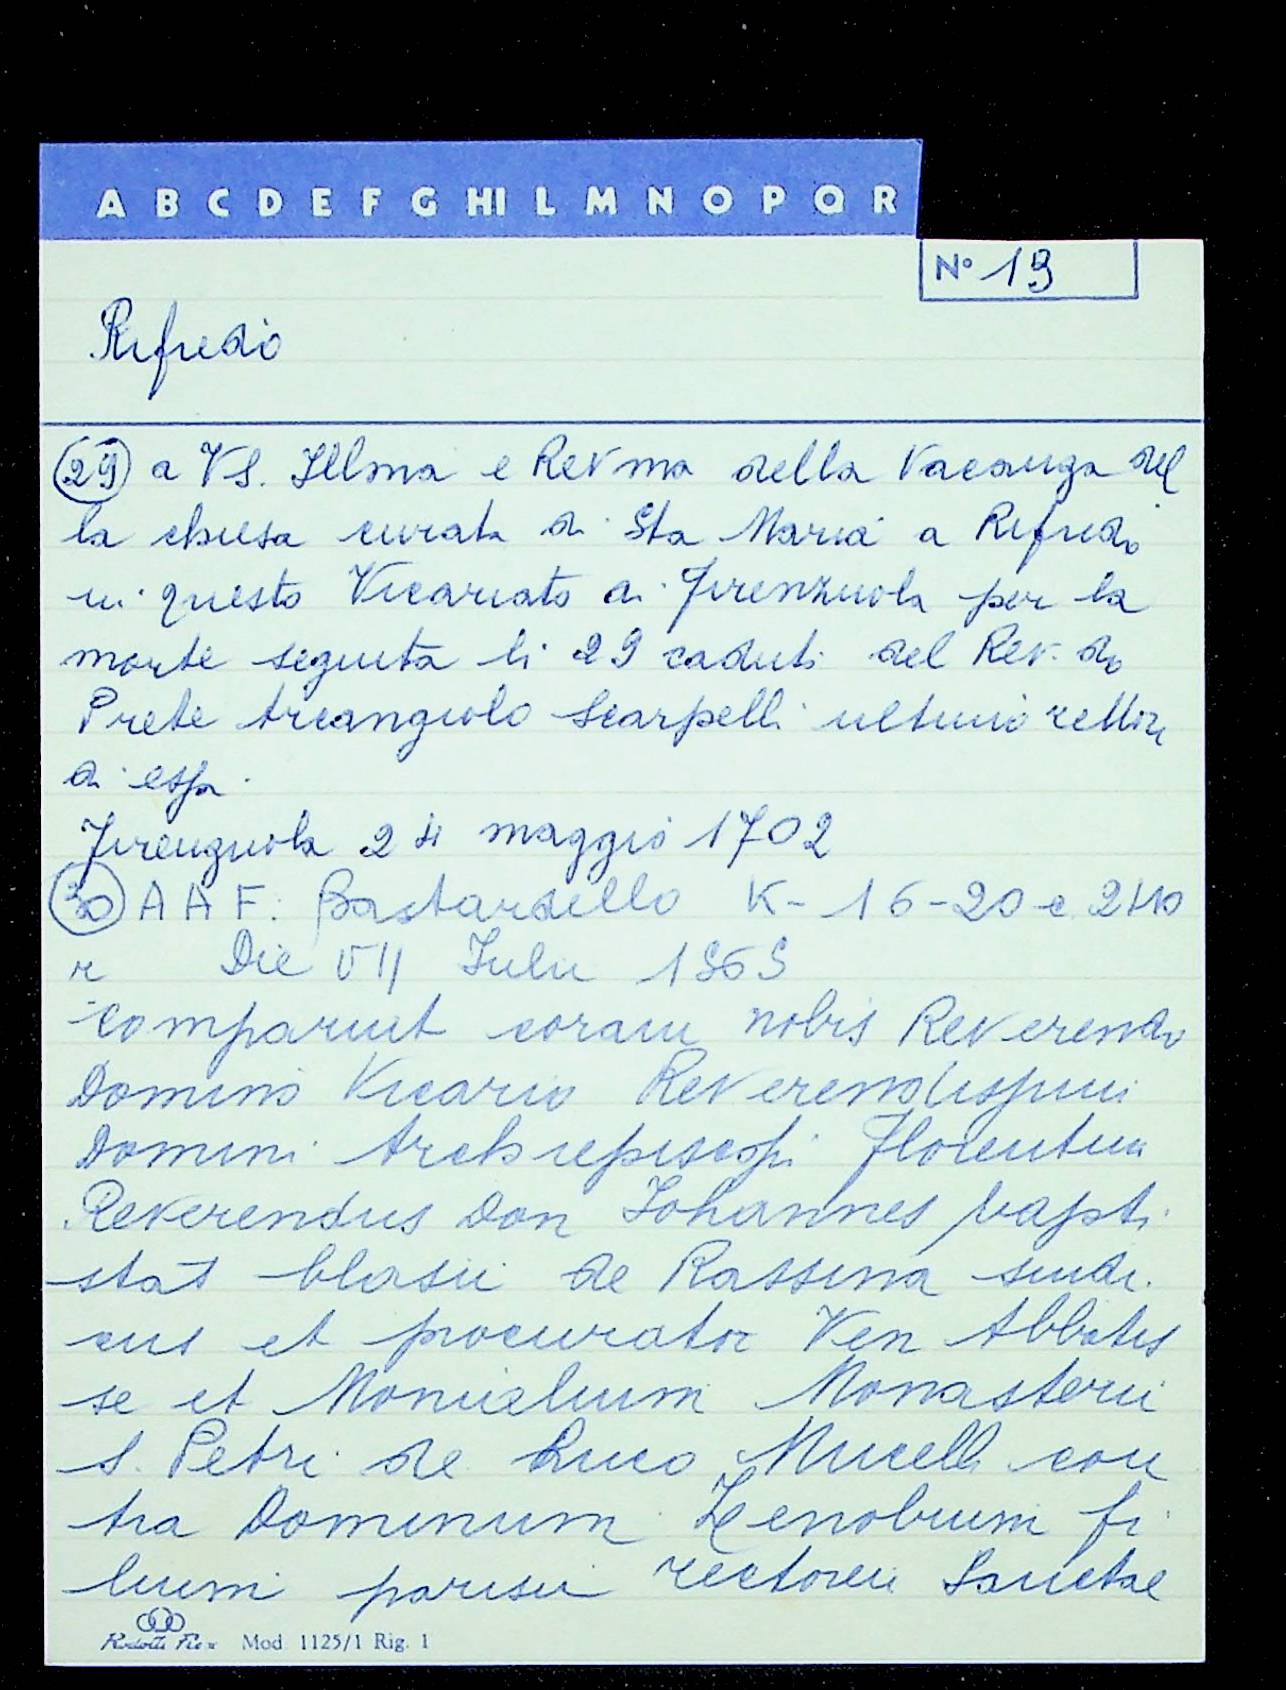 A B C D E F G HI L M N O P Q R
N° 19
Rifredo
29 a VS. Illma e Revma della Vacanza del
la chiesa curata di Sta Maria a Rifredo
in questo Vicariato di Firenzuola per la
morte seguita li 29 caduti del Rev.do
Prete Arcangiolo Scarpelli ultimo rettore
di essa.
Firenzuola 24 maggio 1702
30 A A F. Bastardello K - 16 - 20 c.
r Die VII Julii
Comparuit coram nobis Reverendo
Domino Vicario Reverendissimi
Domini Archiepiscopi Florentini
Reverendus Don Johannes bapti
stas blasii de Rassina sindi
cus et procurator Ven Abbatis
se et Monialium Monasterii
S. Petri de Luco Mucelli con
tra Dominum Zenobium fi
lium parisii rectorem Sanctae
Mod 1125/1 Rig. 1